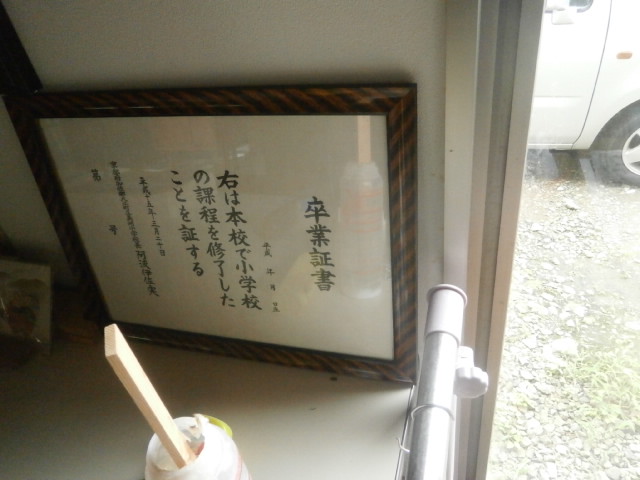 卒業証書
平成 年 月 日生
右は本校で小学校
の課程を修了した
ことを証する
平成十五年三月二十日
第 号